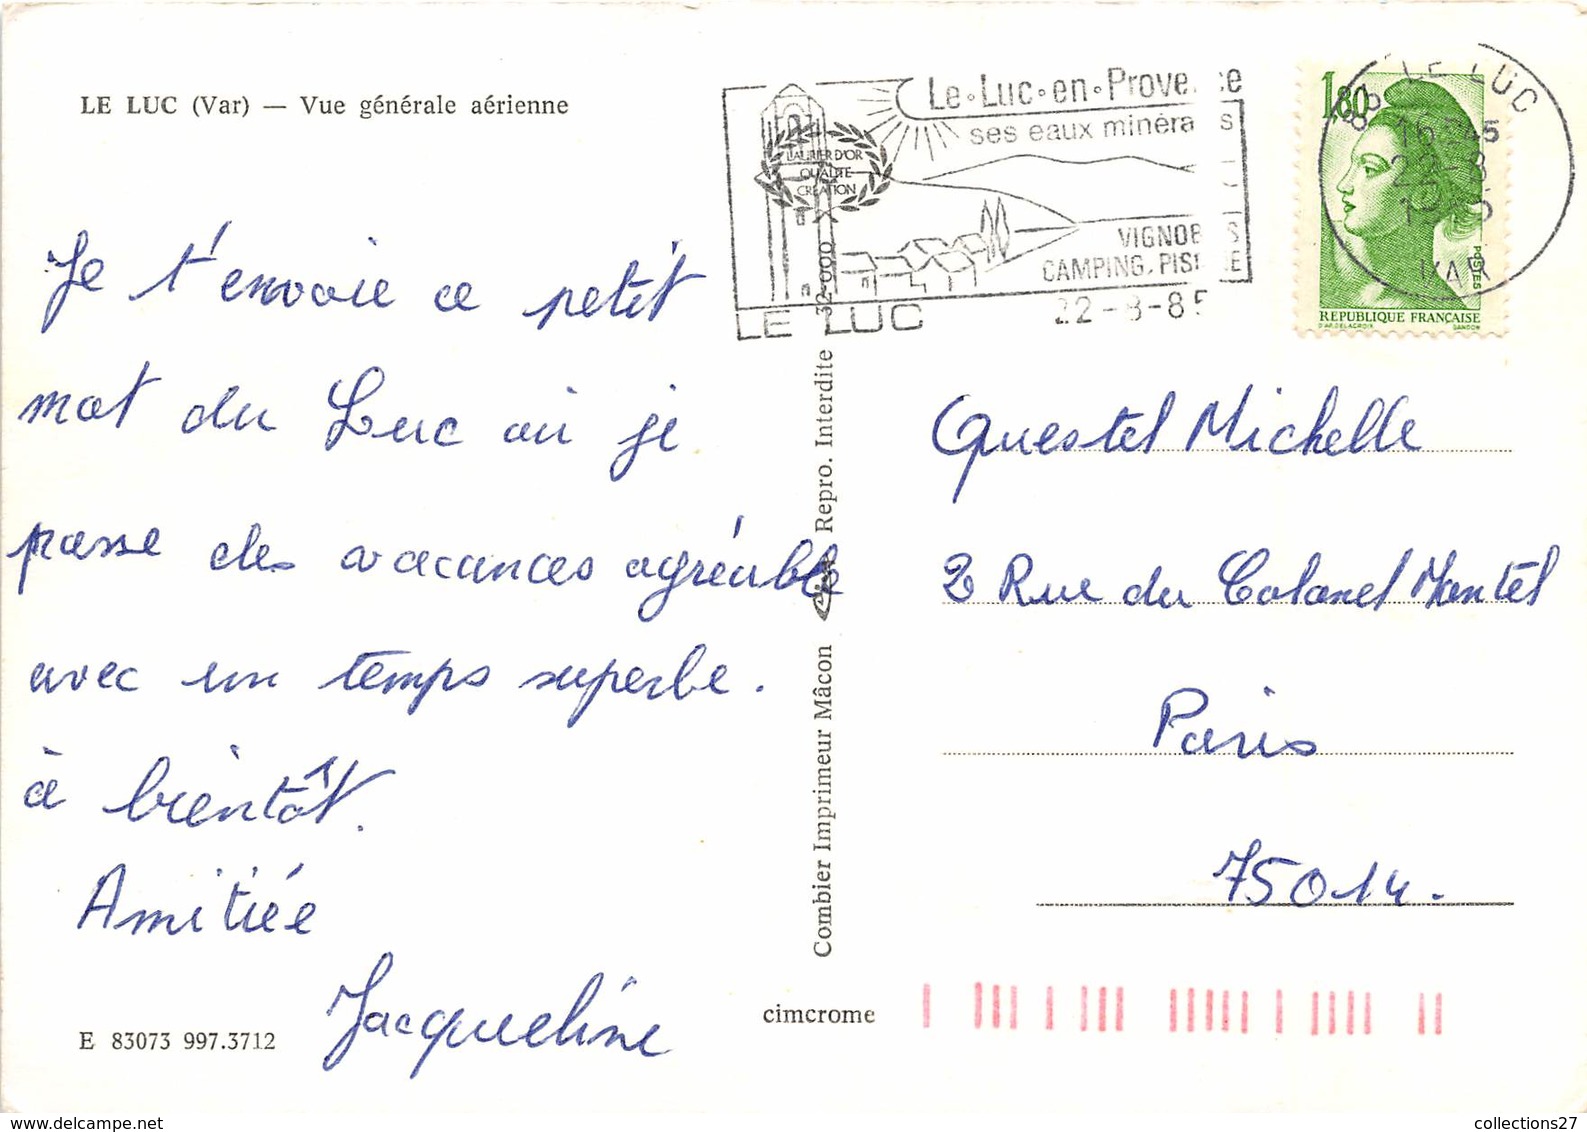 LE LUC (Var) — Vue générale aérienne
Je t'envoie ce petit
mot du Luc où je
passe des vacances agréable
avec un temps superbe.
à bientôt.
Amitiée
Jacqueline
E 83073 997.3712
Combier Imprimeur Mâcon
Repro. Interdite
32-000
cimcrome
LAURIER D'OR
QUALITE
CREATION
Le-Luc-en-Prove ce
ses eaux minéra s
VIGNOB S
CAMPING, PIS E
LE LUC
22-8-85
1,80
POSTES
REPUBLIQUE FRANÇAISE
D'AP. DELACROIX
GANDON
83 LE LUC
16 H45
22-8
VAR
Questel Michelle
2 Rue du Colonel Montel
Paris
75014.
collections27